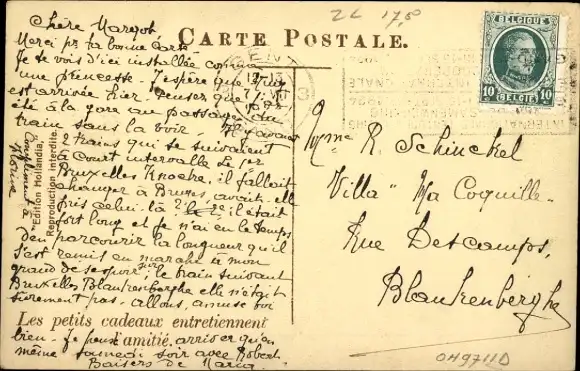 2L 17,5
CARTE POSTALE.
BELGIQUE
BELGIË
10 10
Chère Margot
Merci pr ta bonne carte
Je te vois d'ici installée comme
une princesse. J'espère que
est arrivée hier. Penser que
été à la gare au passage du
train sans la voir. Il y avait
2 trains qui se suivaient
à court intervalle le 1er
Bruxelles Knocke, il fallait
changer à Bruges, avait-elle
pris celui-là? le 2e il était
fort long et je n'ai eu le temps
de parcourir la longueur qu'il
s'est remis en marche à mon
grand désespoir, le train suivant
Bruxelles Blankenberghe elle n'était
sûrement pas. allons, amuse toi
bien. Je pense arriver qu'en
même samedi soir avec Robert.
Baisers de Maria
Compliments à
"Edition Hollandia,"
Reproduction interdite.
Les petits cadeaux entretiennent
l'amitié.
Mme R. Schinckel
Villa "Ma Coquille"
Rue Descamps,
Blankenberghe
OH9711D